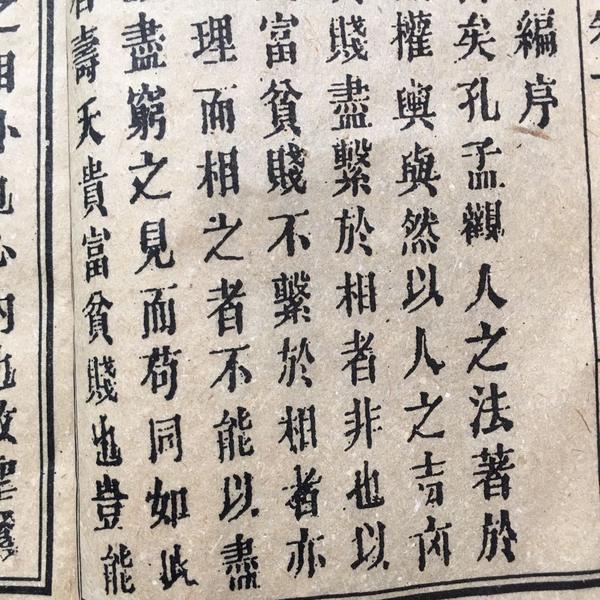 編序
矣孔孟觀人之法著於
權輿與然以人之吉凶
賤盡繫於相者非也以
富貧賤不繫於相者亦
理而相之者不能以盡
盡窮之見而苟同如此
壽夭貴富貧賤也豈能
之相外也心內也故聖賢